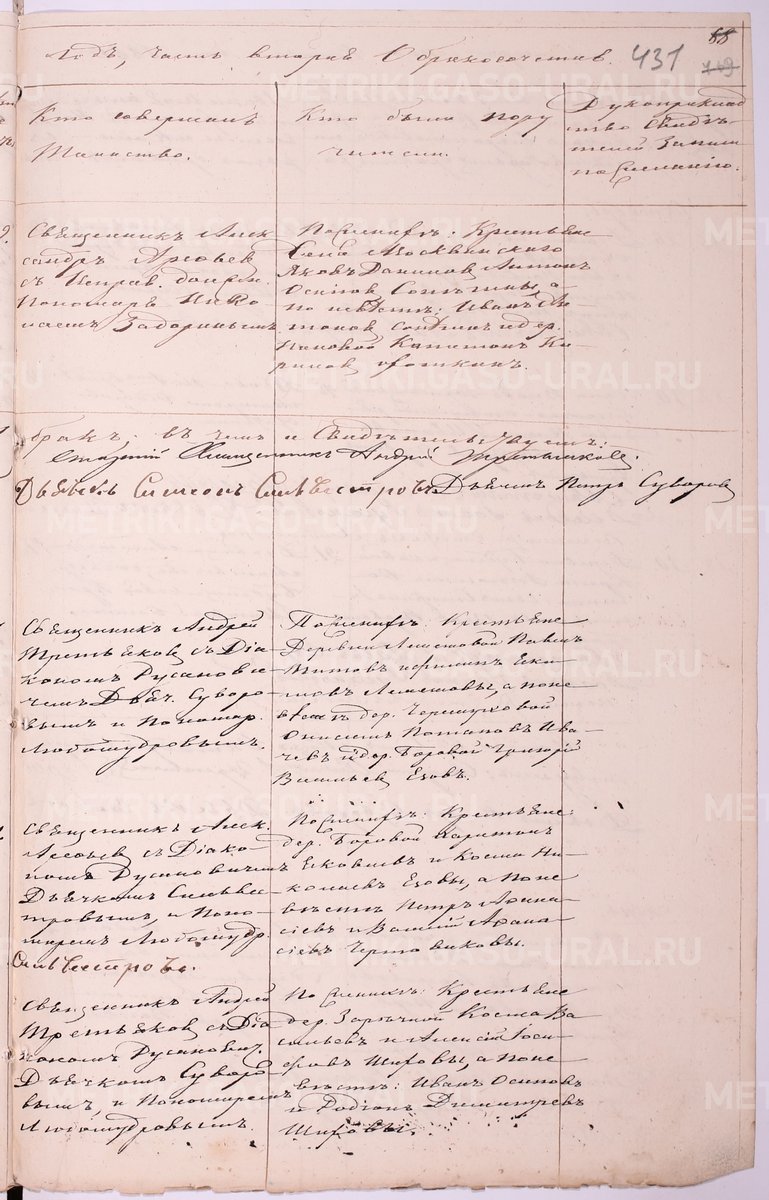 Годъ, часть вторая О бракосочетав.
431
88
Кто совершалъ
Таинство.
Кто были пору
чители.
Рукоприклад
ство Свидѣ-
телей записи
по желанію.
Священникъ Алек
сандръ Арефьев
съ
Пономарь Нико
лаемъ Задоринымъ
По женихѣ: Крестьяне
Села Москвинскаго
Яковъ Даниловъ Антонъ
Осиповъ а
по невѣстѣ: Иванъ Ан
тоновъ и дер.
Пановой Капитонъ Ки
риловъ
бракъ, въ чемъ и Свидѣтельствуемъ:
Священникъ Андрей Третьяковъ.
Дьячекъ Симеонъ Сильвестровъ
Дьячекъ Петръ Суворовъ
Священникъ Андрей
Третьяковъ съ Діа
кономъ Русанови
чемъ Дьяч. Суворо
вымъ и Пономар.
Любомудровымъ.
По женихѣ: Крестьяне
Деревни Павелъ
Титовъ и Еки
мовъ а по не
вѣстѣ дер. Черемуховой
Онисимъ Потаповъ
и дер. Боровой Григорій
Васильевъ Езовъ.
Священникъ Алек.
Арефьевъ съ Діако
номъ Русановичемъ
Дьячкомъ Сильвес
тровымъ, и Поно
маремъ Любомудр.
Сильвестровъ.
По женихѣ: Крестьяне:
дер. Боровой Харитонъ
Яковлевъ и Косма Ни
колаевъ Езовы, а по не
вѣстѣ Петръ Афана
сіевъ и Василій Афана
сіевъ Чертовиковы.
Священникъ Андрей
Третьяковъ съ Діа
кономъ Русанович.
Дьячкомъ Суворо
вымъ, и Пономаремъ
Любомудровымъ.
По женихѣ: Крестьяне
дер. Зарѣчной Косма Ва
сильевъ и Алексій Іоси
фовъ Шифовы, а по не
вѣстѣ: Иванъ Осиповъ
и Родіонъ Димитріевъ
Шифовы.
METRIKI.GASO-URAL.RU